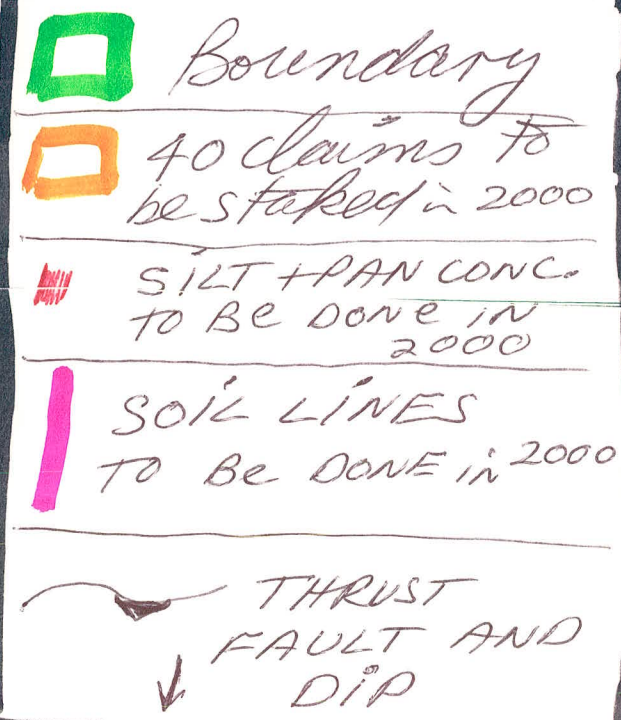 Boundary
40 claims to
be staked in 2000
SILT + PAN CONC.
TO BE DONE IN
2000
SOIL LINES
TO BE DONE IN 2000
THRUST
FAULT AND
DIP